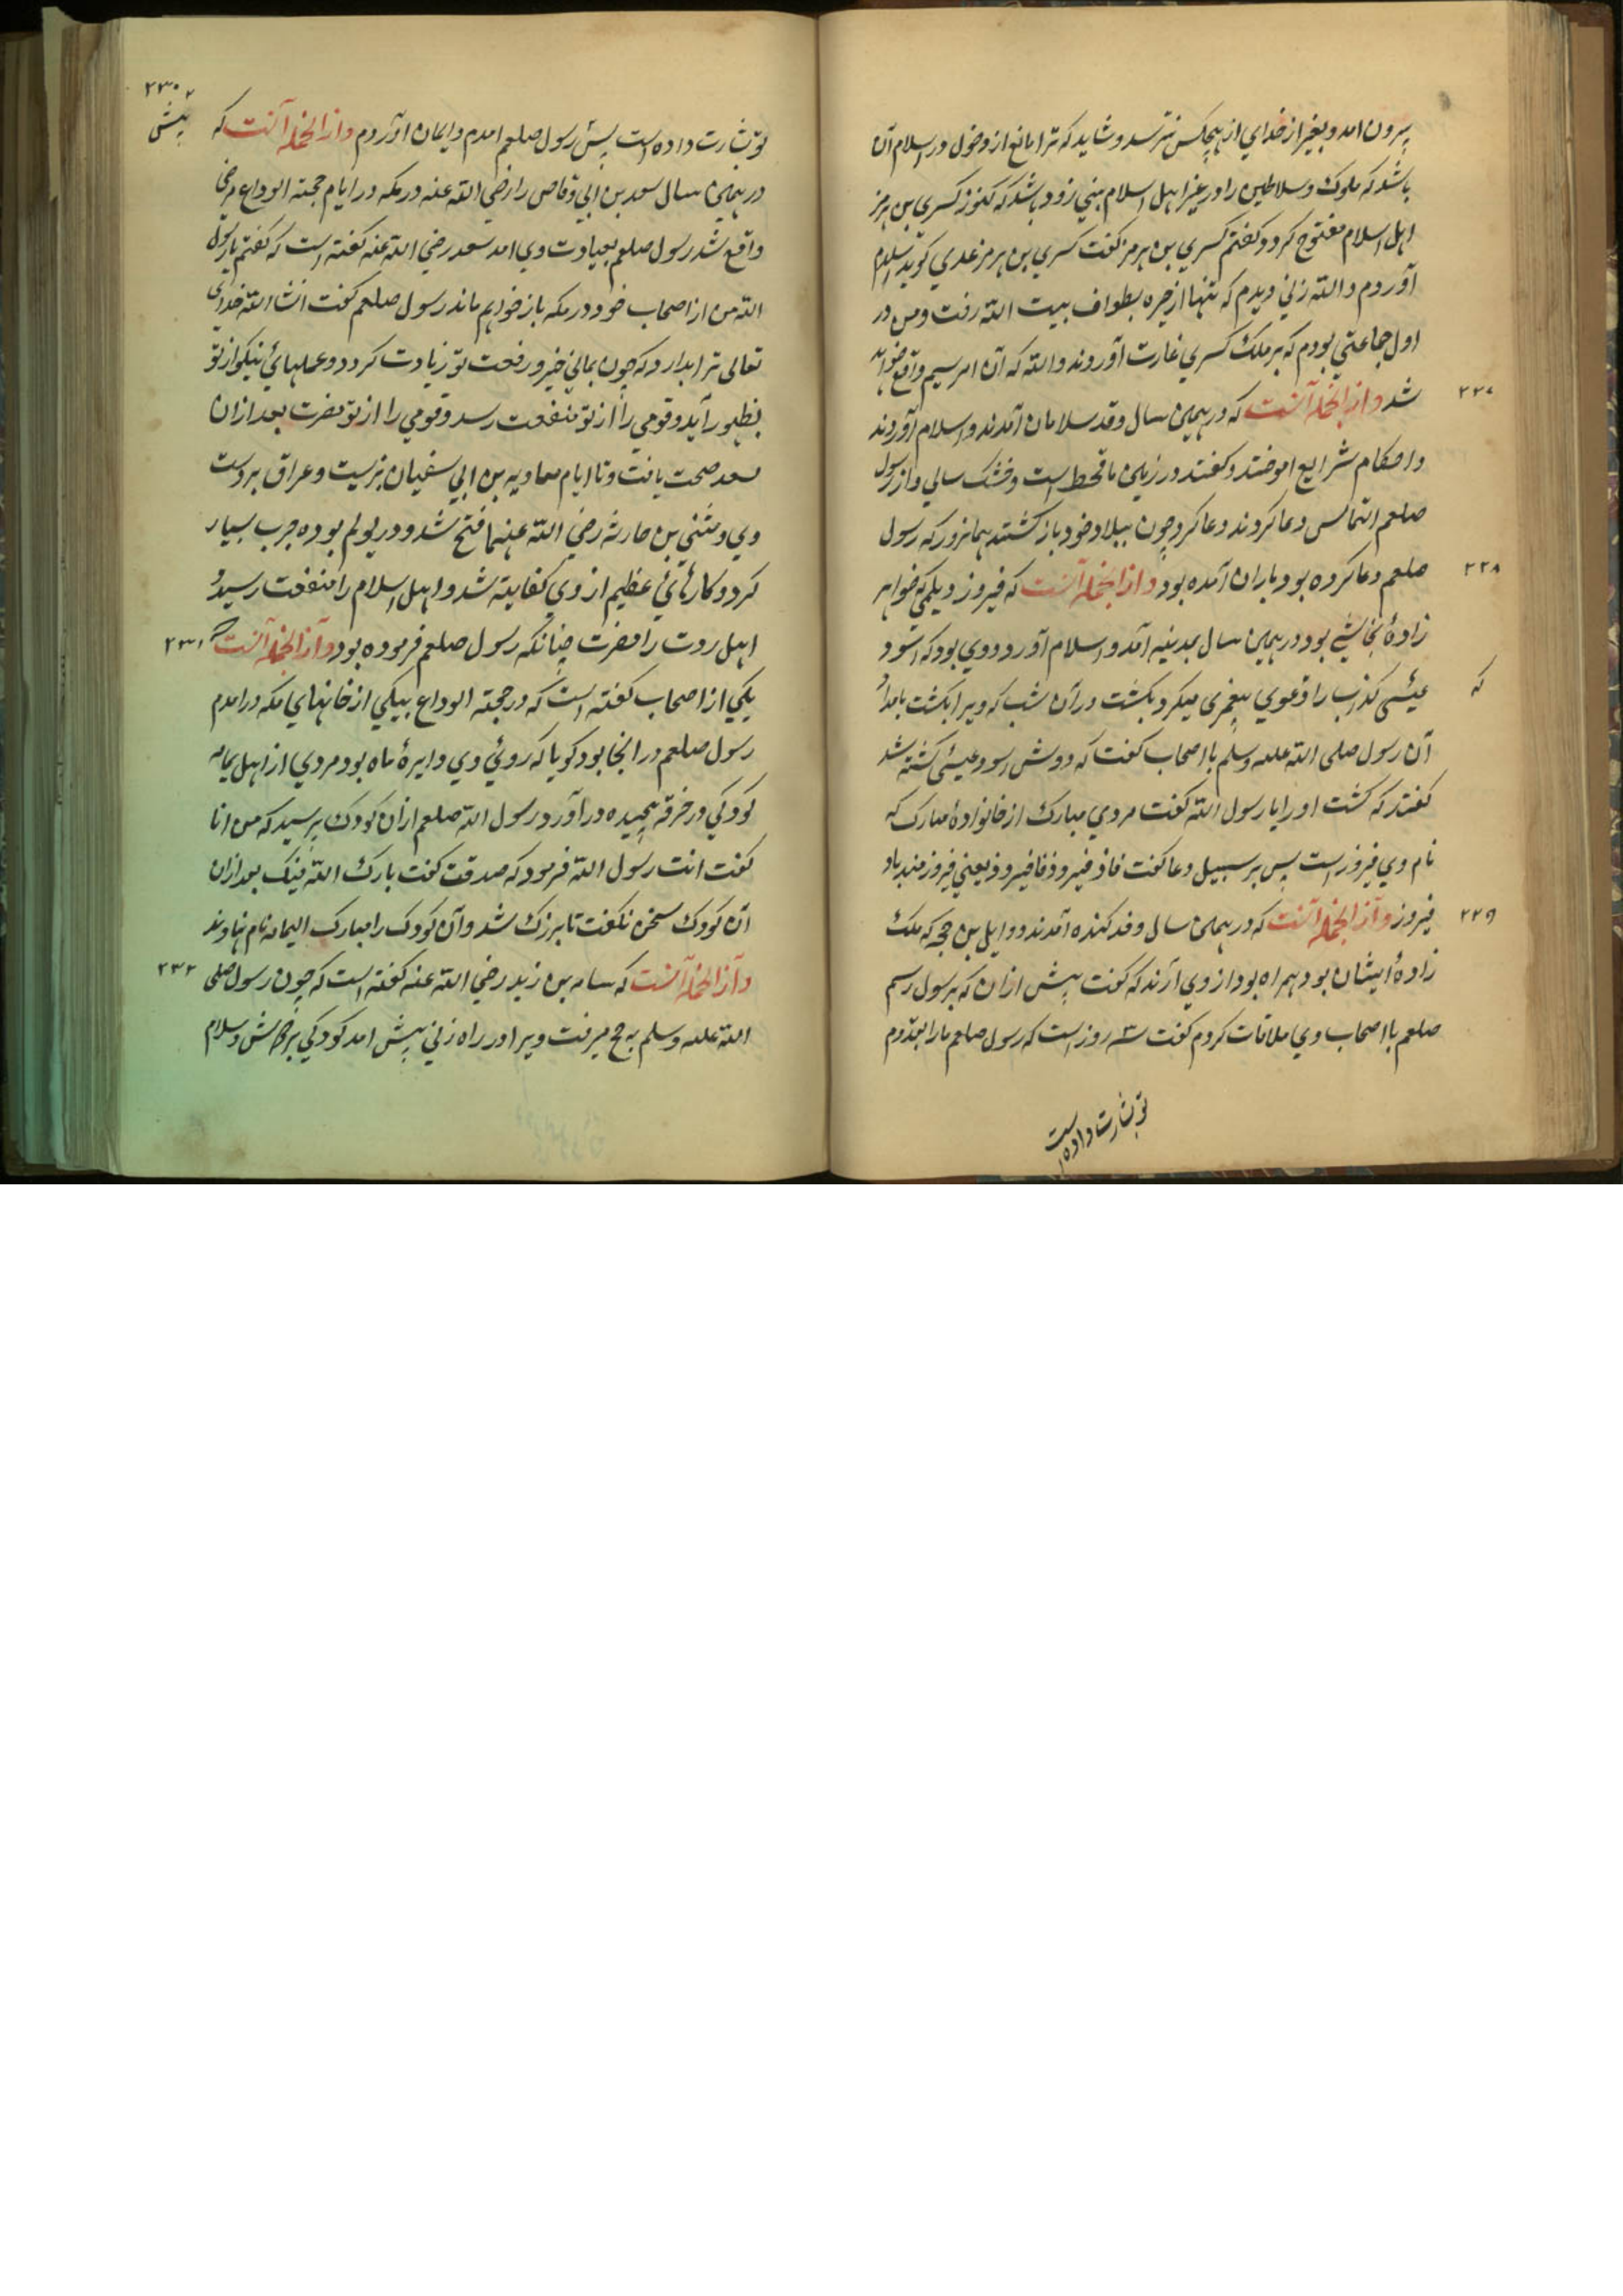 بیرون امد و بغیر از خدای از هیچکس نترسد و شاید که ترا مانع از دخول در اسلام آن
باشد که ملوک و سلاطین را در غیر اهل اسلام بینی زود باشد که کنوز کسری بن هرمز
اهل اسلام مفتوح کردد کفتم کسری بن هرمز کفت کسری بن هرمز عدی کوید اسلام
آوردم و الله زنی دیدم که تنها از حیره بطواف بیت الله رفت و من در
اول جماعتی بودم که بر ملک کسری غارت آوردند والله که آن امر سیم واقع خواهد
شد و از انجمله آنست که در همین سال وفد سلامان آمدند و اسلام آوردند
۲۲۷
و احکام شرایع اموختند و کفتند در زمین ما قحط است و خشک سالی و از رسول
صلعم التماس دعا کردند دعا کرد چون ببلاد خود باز کشتند همانروز که رسول
صلعم دعا کرده بود باران آمده بود و از انجمله آنست که فیروز دیلمی که خواهر
۲۲۸
زادهٔ نجاشی بود در همین سال بمدینه آمد و اسلام آورد و وی بود که اسود
عنسی کذاب را دعوی پیغمبری میکرد بکشت در آن شب که ویرا بکشت بامداد
که
آن رسول صلی الله علیه وسلم با اصحاب کفت که دوش اسود عنسی کشته شد
کفتند که کشت او را یا رسول الله کفت مردی مبارک از خانوادهٔ مبارک که
نام وی فیروز است پس بر سبیل دعا کفت فاز فیروز فافیروز یعنی فیروزمند باد
فیروز و از انجمله آنست که در همین سال وفد کنده آمدند و وایل بن حجر که ملک
۲۲۹
زادهٔ ایشان بود همراه بود از وی آرند که کفت پیش از ان که برسول رسم
صلعم با اصحاب وی ملاقات کردم کفت سه روز است که رسول صلعم ما را بقدوم
تو بشارت داده است
۲۳۰
تو بشارت داده است پس رسول صلعم امدم و ایمان اوردم و از انجمله آنست که
در همین سال سعد بن ابی وقاص را رضی الله عنه در مکه در ایام حجته الوداع مرضی
واقع شد رسول صلعم بعیادت وی امد سعد رضی الله عنه کفته است که کفتم یا رسول
الله من از اصحاب خود در مکه باز خواهم ماند رسول صلعم کفت انشا الله خدای
تعالی ترا بدارد که چون بمانی خیر و رفعت تو زیادت کردد و عملهای نیکو از تو
بظهور آید و قومی را از تو منفعت رسد و قومی را از تو مضرت بعد ازان
سعد صحت یافت و تا ایام معاویه بن ابی سفیان بزیست و عراق بر دست
وی و مثنی بن حارثه رضی الله عنهما فتح شد و در یولم بوده حرب بسیار
کرد و کارهای عظیم از وی کفایت شد و اهل اسلام را منفعت رسید و
اهل ردت را مضرت چنانکه رسول صلعم فرموده بود و از انجمله آنست که
۲۳۱
یکی از اصحاب کفته است که در حجته الوداع بیکی از خانهای مکه در امدم
رسول صلعم در انجا بود کویا که روئی وی دایرهٔ ماه بود مردی از اهل یمامه
کودکی در خرقه پیچیده در آورد رسول الله صلعم ازان کودک پرسید که من انا
کفت انت رسول الله فرمود که صدقت کفت بارک الله فیک بعد ازان
آن کودک سخن نکفت تا بزرک شد و آن کودک را مبارک الیمامه نام نهاوند
و از انجمله آنست که اسامه بن زید رضی الله عنه کفته است که چون رسول صلی
۲۳۲
الله علیه وسلم به حج میرفت ویرا در راه زنی پیش امد کودکی بر دوش و سلام